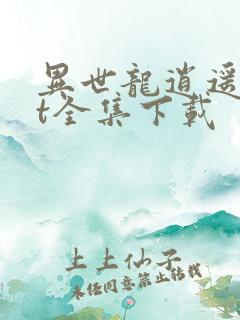 異世龍逍遥
t全集下載
上上仙子
未经同意禁止转载